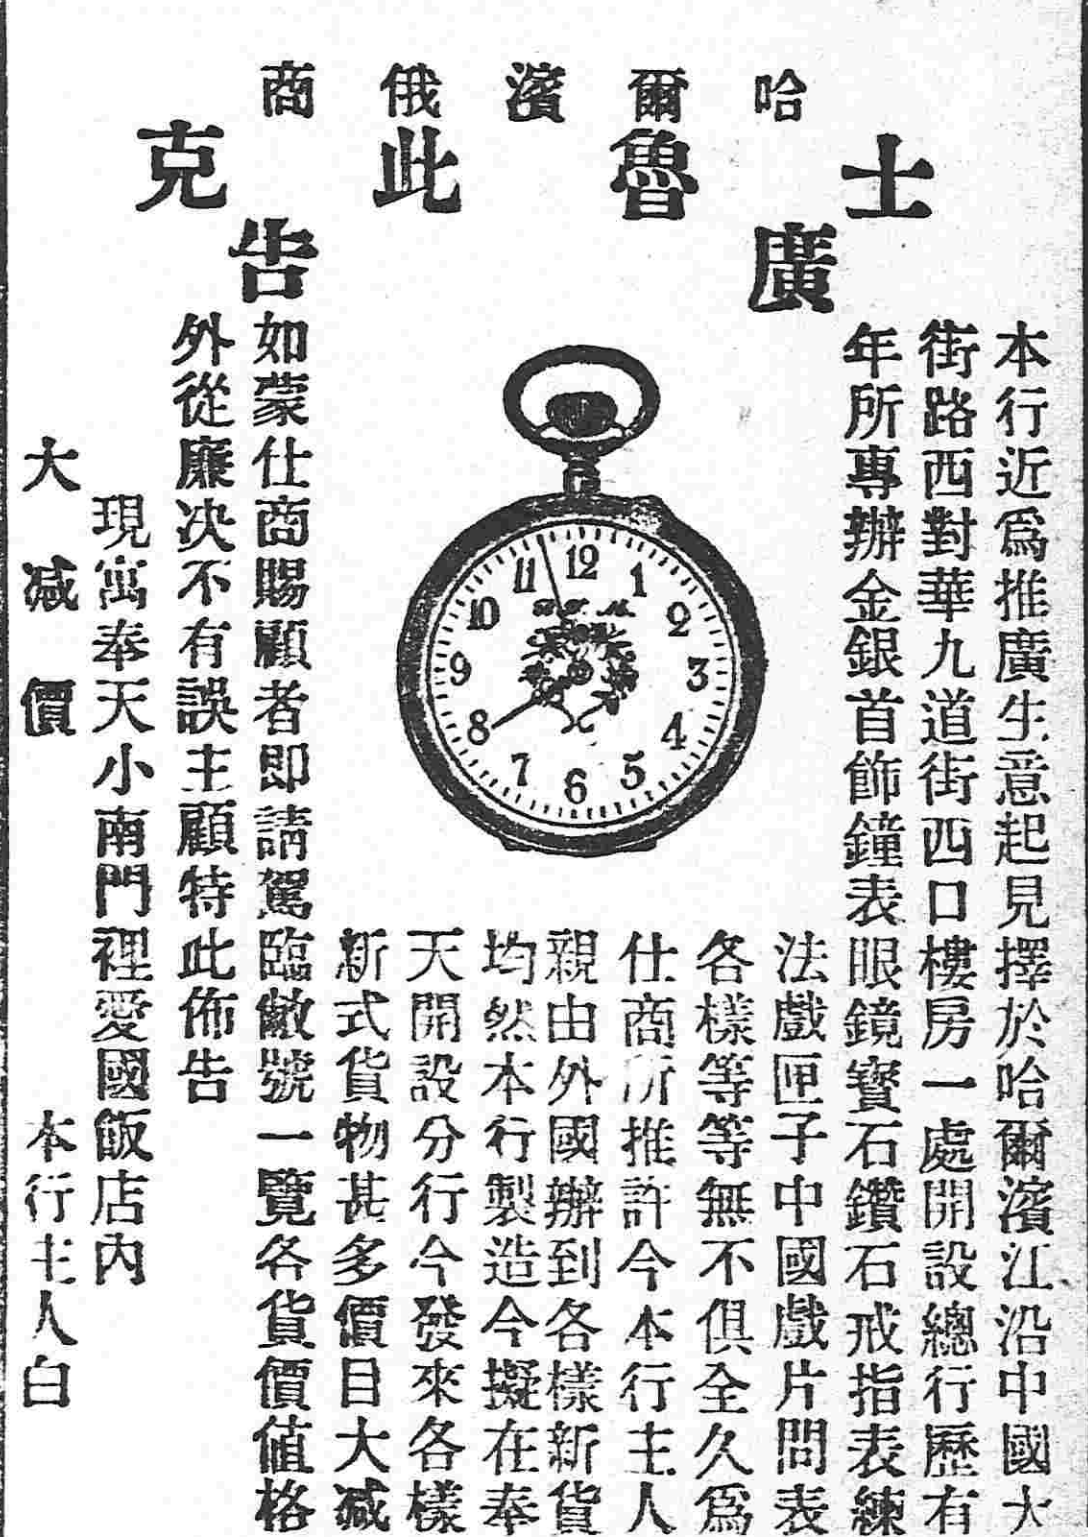 哈爾濱俄商
士魯此克
廣告
本行近爲推廣生意起見擇於哈爾濱江沿中國大
街路西對華九道街西口樓房一處開設總行歷有
年所專辦金銀首飾鐘表眼鏡寳石鑽石戒指表練
法戲匣子中國戲片問表
各樣等等無不俱全久爲
仕商所推許今本行主人
親由外國辦到各樣新貨
均然本行製造今擬在奉
天開設分行今發來各樣
新式貨物甚多價目大减
如蒙仕商賜顧者即請駕臨敝號一覽各貨價值格
外從廉决不有誤主顧特此佈告
現寓奉天小南門裡愛國飯店內
大减價 本行主人白
12
1
2
3
4
5
6
7
8
9
10
11